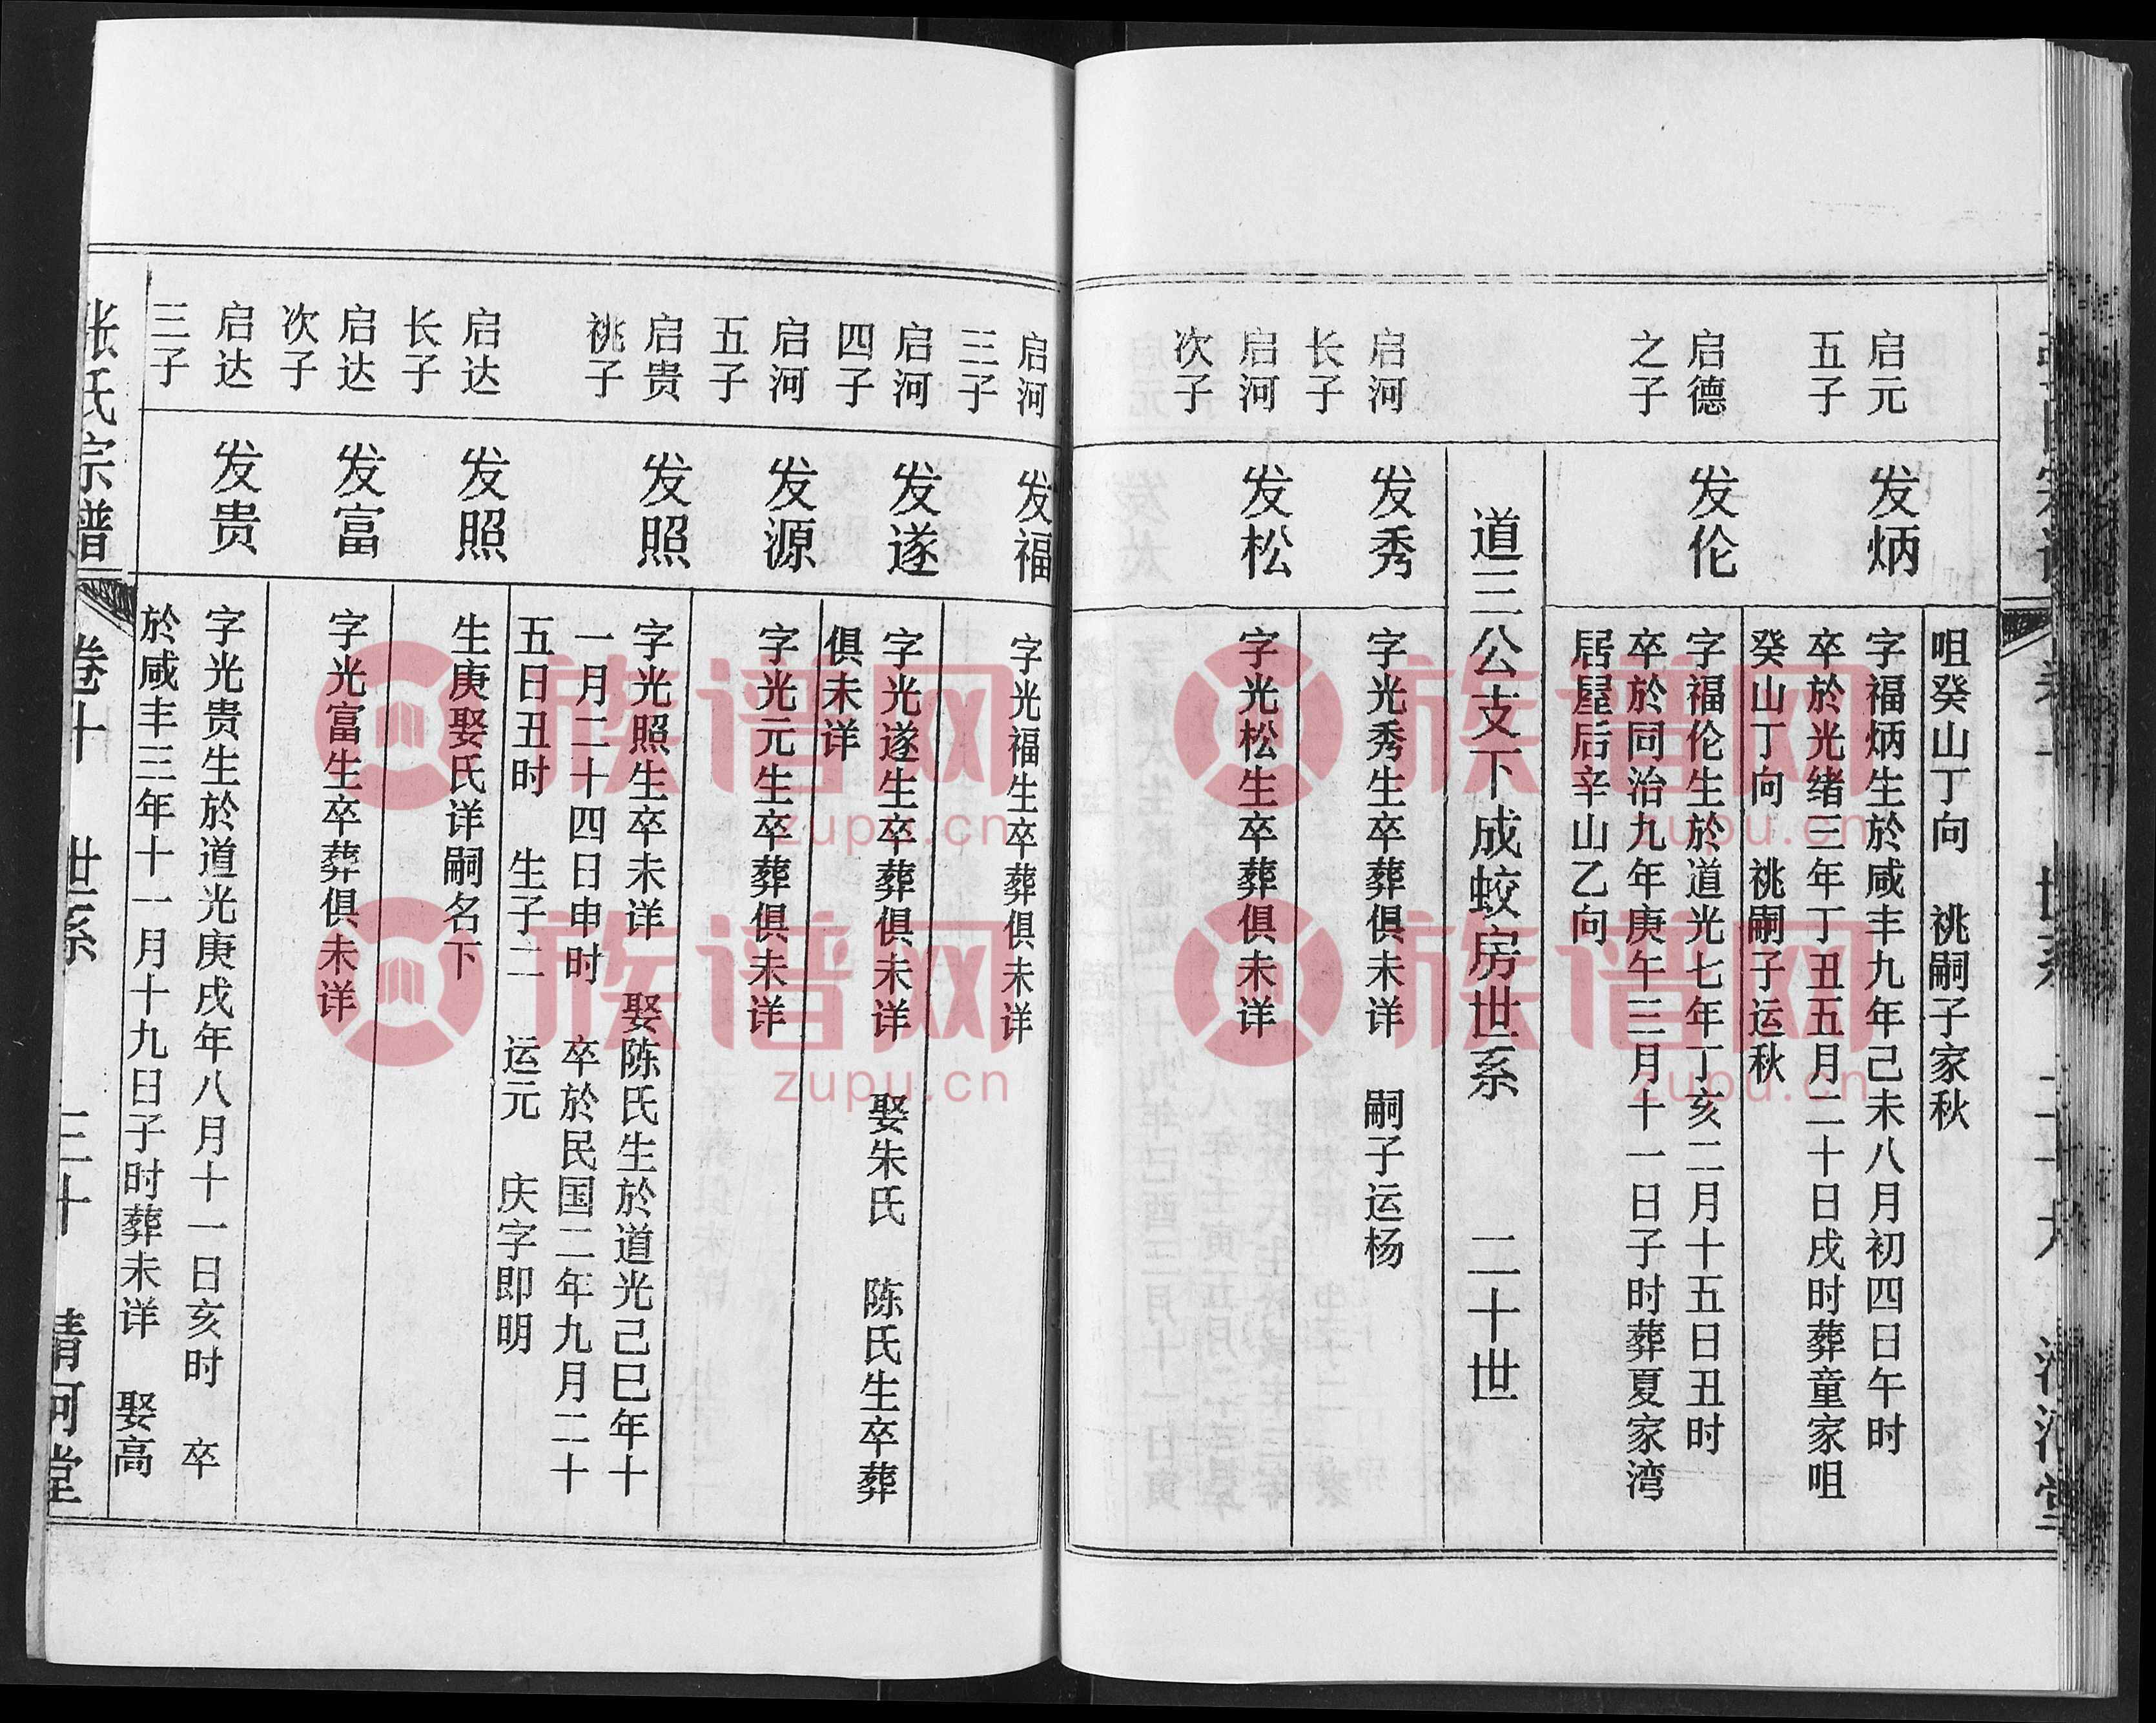 咀癸山丁向　祧嗣子家秋
启元
五子
发炳
字福炳生於咸丰九年己未八月初四日午时
卒於光绪三年丁丑五月二十日戌时葬童家咀
癸山丁向　祧嗣子运秋
启德
之子
发伦
字福伦生於道光七年丁亥二月十五日丑时
卒於同治九年庚午三月十一日子时葬夏家湾
居屋后辛山乙向
道三公支下成蛟房世系　二十世
启河
长子
发秀
字光秀生卒葬俱未详　嗣子运杨
启河
次子
发松
字光松生卒葬俱未详
启河
三子
发福
字光福生卒葬俱未详
启河
四子
发遂
字光遂生卒葬俱未详　娶朱氏　陈氏生卒葬
俱未详
启河
五子
发源
字光元生卒葬俱未详
启贵
祧子
发照
字光照生卒未详　娶陈氏生於道光己巳年十
一月二十四日申时　卒於民国二年九月二十
五日丑时　生子二　运元　庆字即明
启达
长子
发照
生庚娶氏详嗣名下
启达
次子
发富
字光富生卒葬俱未详
启达
三子
发贵
字光贵生於道光庚戌年八月十一日亥时　卒
於咸丰三年十一月十九日子时葬未详　娶高
张氏宗谱　卷十　世系　三十　清河堂
族谱网
zupu.cn
族谱网
zupu.cn
族谱网
zupu.cn
族谱网
zupu.cn